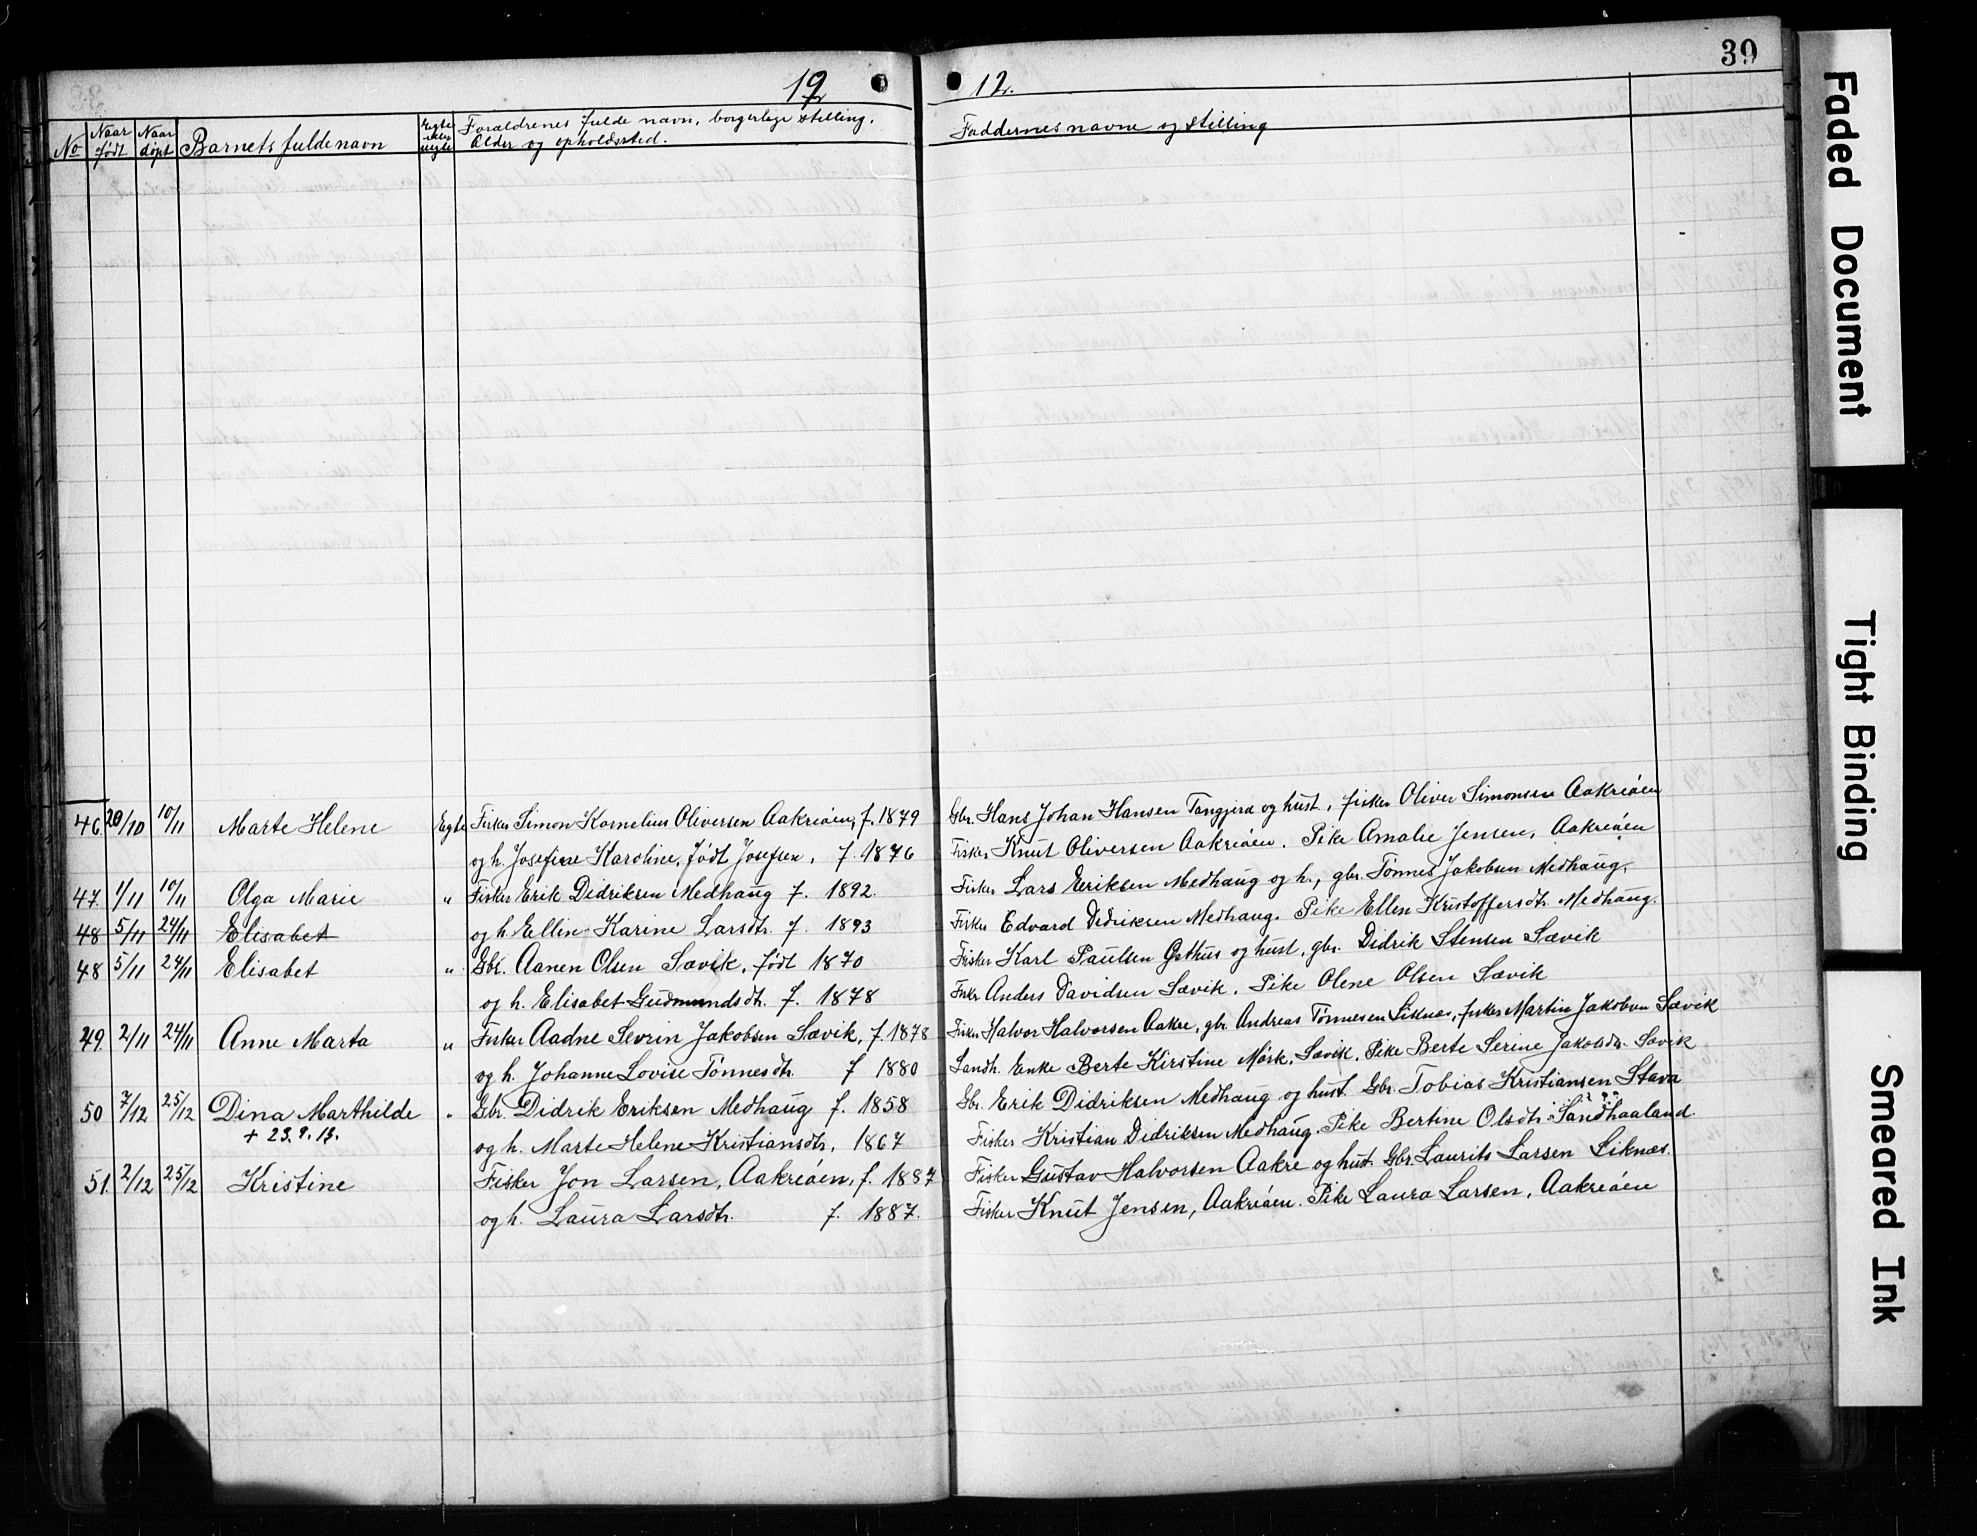 39
19 12.
No Naar født Naar døpt Barnets fulde navn Egte eller uegte Forældrenes fulde navn, borgerlige stilling, Alder og opholdssted. Faddernes navne og stilling
46 20/10 10/11 Marte Helene Egte Fisker Simon Kornelius Oliversen Aakreøen, f. 1879 Gbr. Hans Johan Hansen Tangjerd og hust, fisker Oliver Simonsen Aakreøen
og h. Josefine Karoline, født Josefsen, f. 1876 Fisker Knut Oliversen Aakreøen. Pike Amalie Jensen, Aakreøen
47 1/11 10/11 Olga Marie " Fisker Erik Didriksen Medhaug f. 1892 Fisker Lars Eriksen Medhaug og h., gbr. Tønnes Jakobsen Medhaug.
48 5/11 24/11 Elisabet og h. Ellin Karine Larsdtr. f. 1893 Fisker Edvard Didriksen Medhaug. Pike Ellen Kristoffersdtr. Medhaug.
48 5/11 24/11 Elisabet " Gbr. Aanen Olsen Sævik, født 1870 Fisker Karl Paulsen Østhus og hust, gbr. Didrik Stensen Sævik
og h. Elisabet Gudmundsdtr. f. 1878 Fisker Anders Davidsen Sævik. Pike Olene Olsen Sævik
49 2/11 24/11 Anne Marta " Fisker Aadne Sevrin Jakobsen Sævik, f. 1878 Fisker Halvor Halvorsen Aakre, gbr. Andreas Tønnesen Liknes, fisker Martin Jakobsen Sævik
og h. Johanne Lovise Tønnesdtr. f 1880 Landh. Enke Berte Kirstine Mørk, Sævik. Pike Berte Serine Jakobsdtr. Sævik
50 7/12 25/12 Dina Marthilde " Gbr. Didrik Eriksen Medhaug f. 1858 Gbr. Erik Didriksen Medhaug og hust. Gbr. Tobias Kristiansen Stava
+ 23.9.13. og h. Marte Helene Kristiansdtr. 1867 Fisker Kristian Didriksen Medhaug. Pike Bertine Olsdtr. Sandhaaland.
51. 2/12 25/12 Kristine Fisker Jon Larsen, Aakreøen, f. 1887 Fisker Gustav Halvorsen Aakre og hust. Gbr. Laurits Larsen Liknes.
og h. Laura Larsdtr. f. 1887. Fisker Knut Jensen, Aakreøen. Pike Laura Larsen, Aakreøen
Faded Document
Tight Binding
Smeared Ink